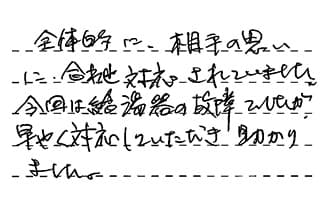 全体的に、相手の思い
に合わせ対応されていました。
今回は給湯器の故障でしたが、
早やく対応していただき助かり
ました。